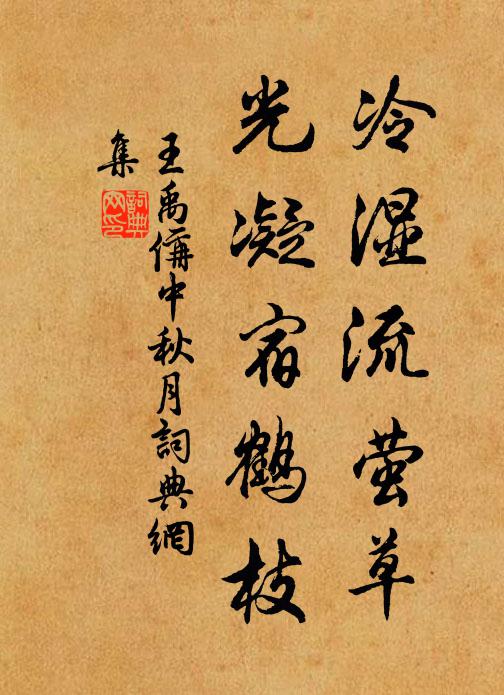 冷湿流萤草
光凝宿鶴枝
王禹偁中秋月詞典網
集
詞典
网印